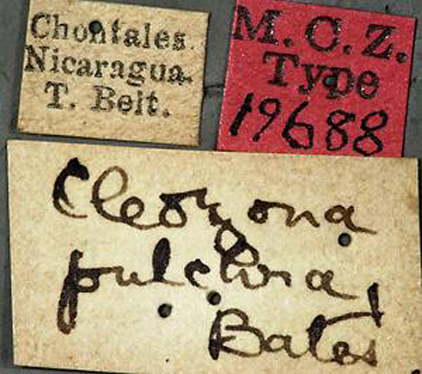 Chontales.
Nicaragua.
T. Belt.
M. C. Z.
Type
19688
Cleozona
pulchra,
Bates